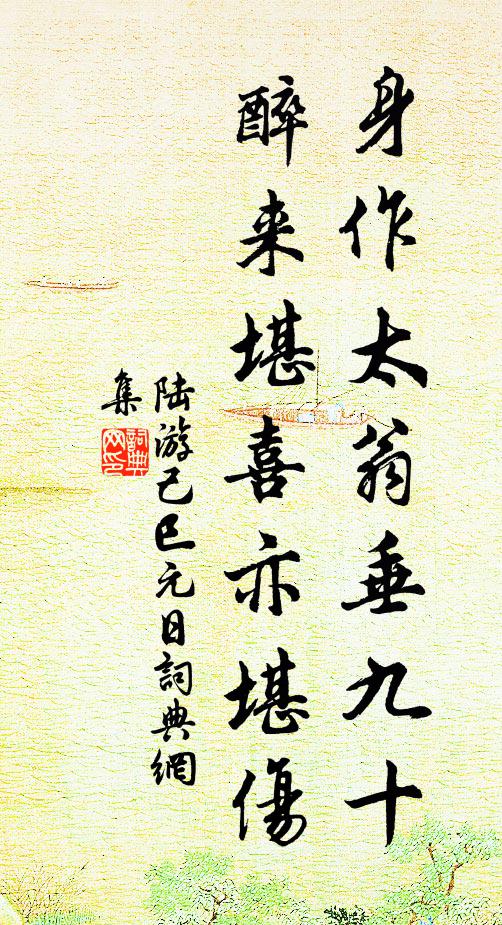 身作太翁垂九十
醉来堪喜亦堪傷
陆游己巳元日詞典網
集
詞典网印